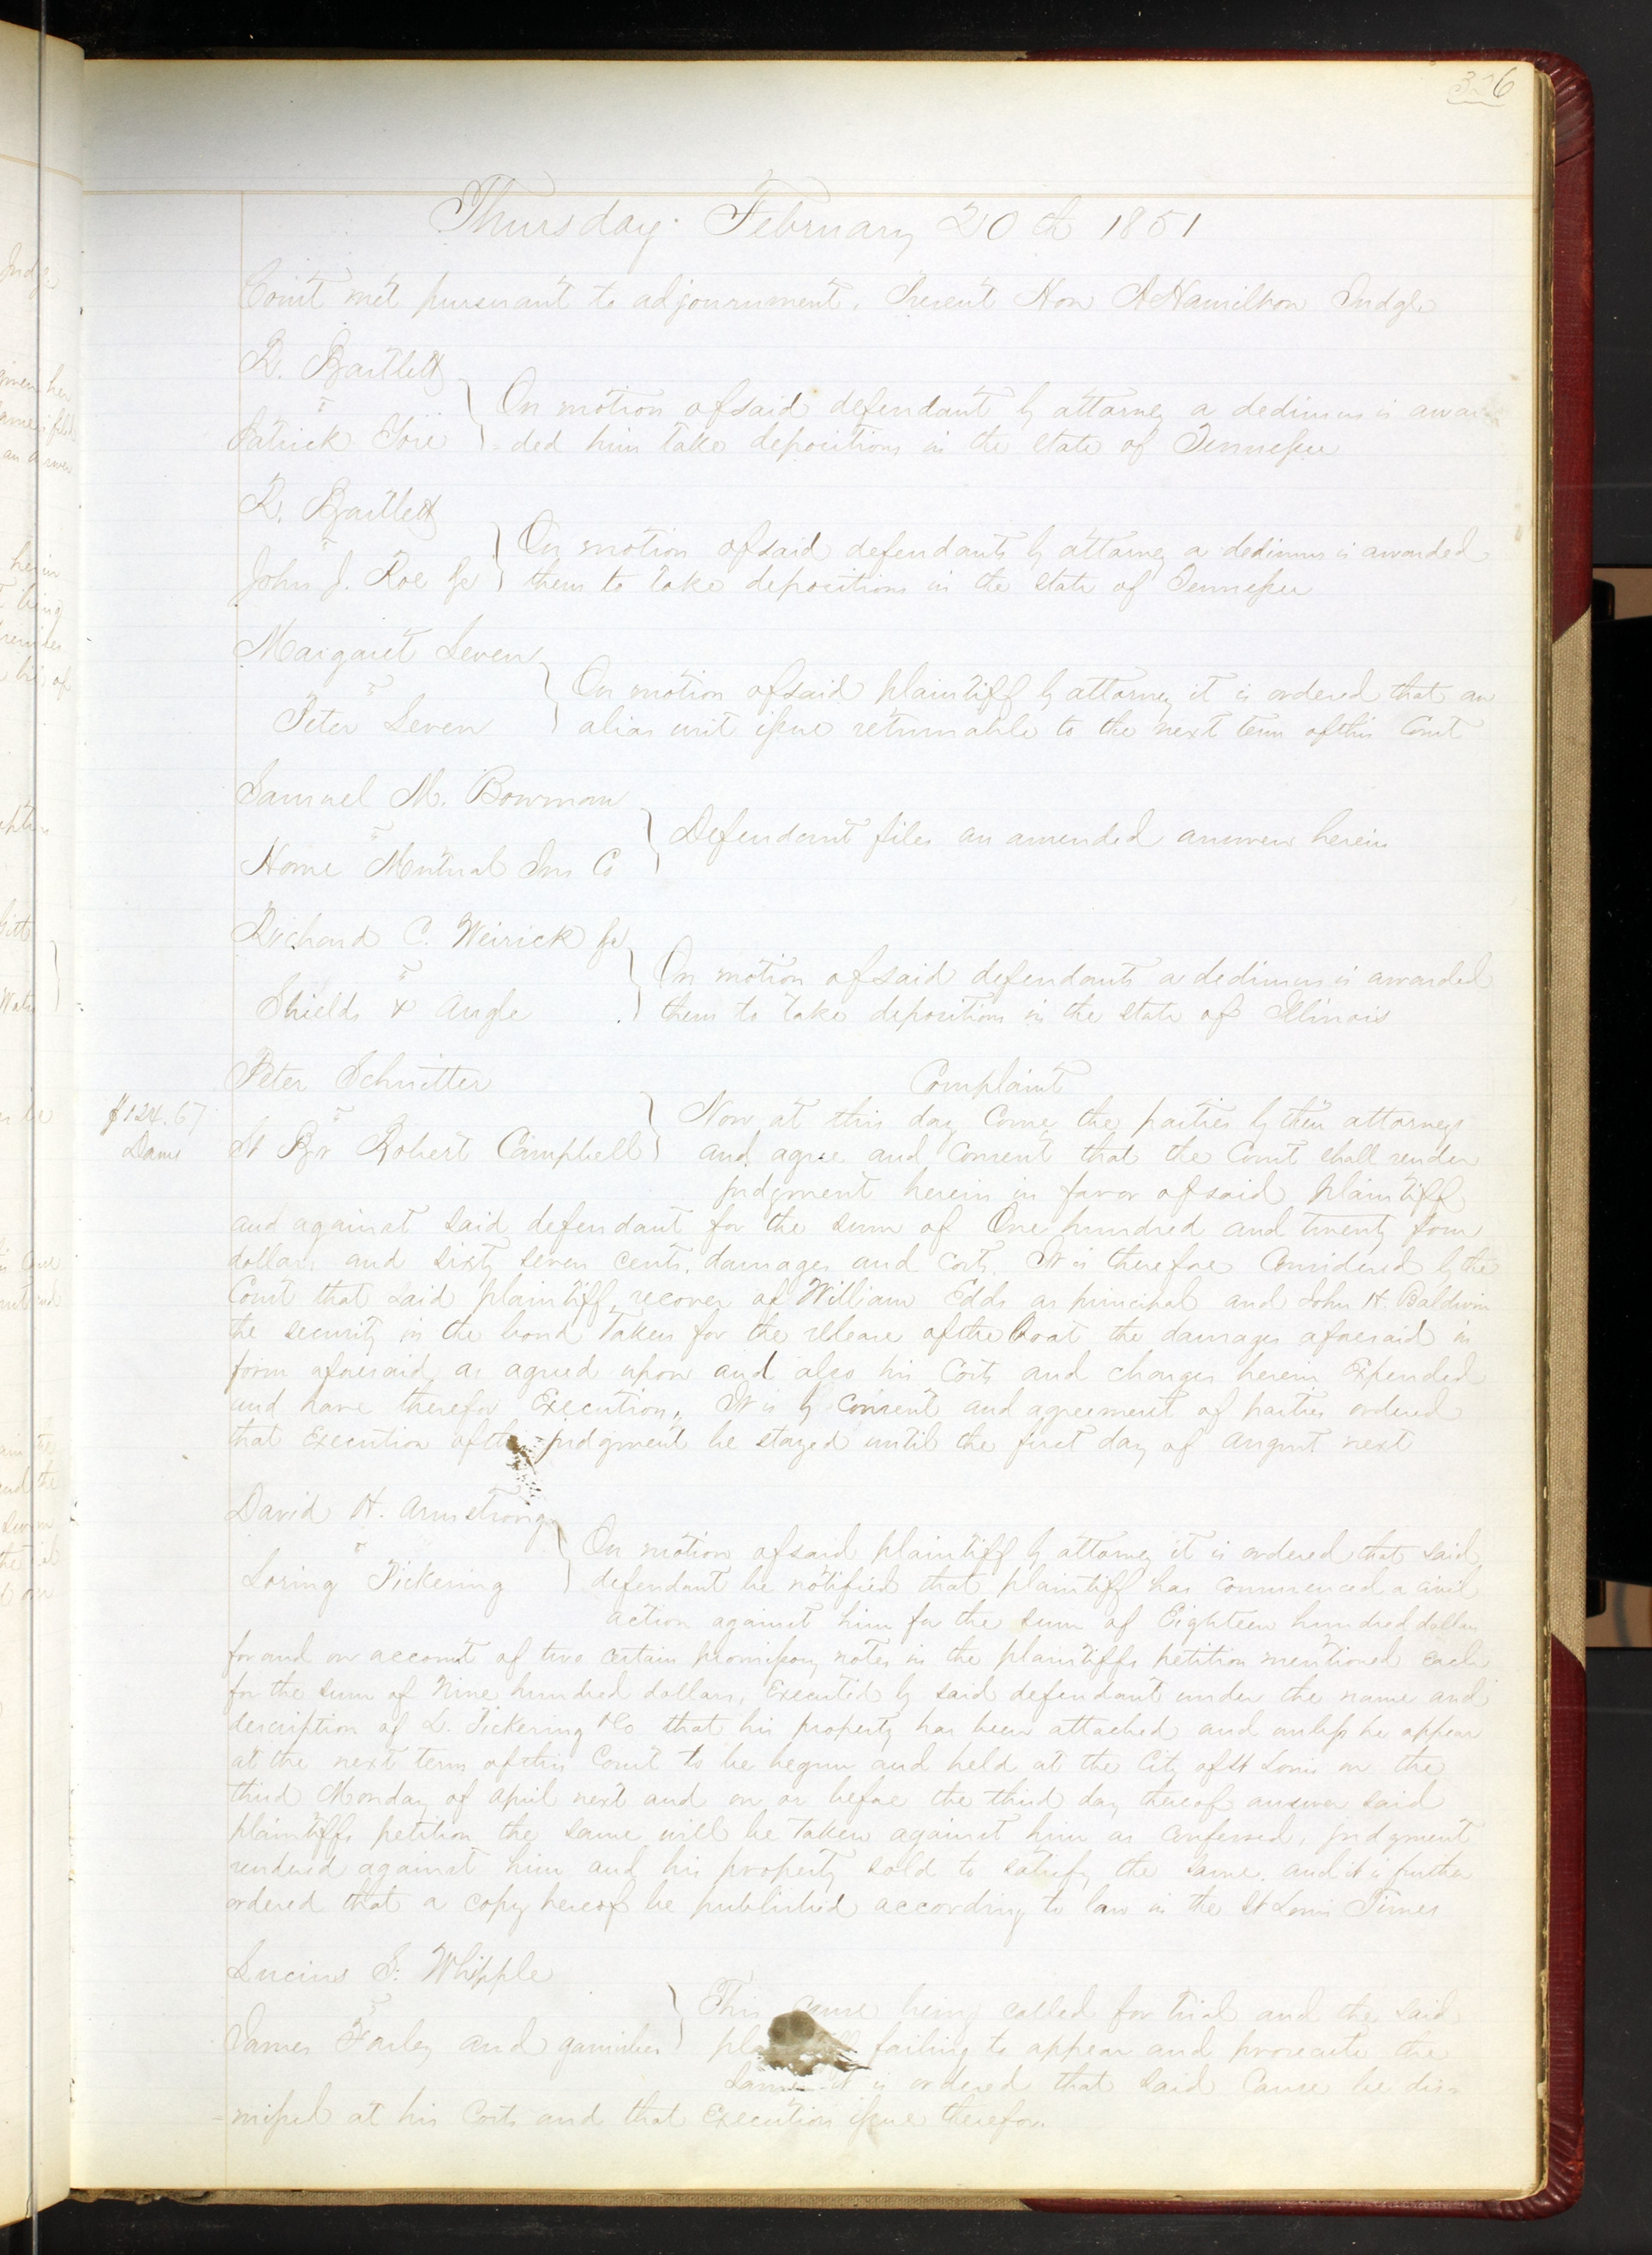 326
Thursday February 20th 1851
Court met pursuant to adjournment. Present Hon A Hamilton Judge
R. Bartlett
vs
Patrick
On motion of said defendant by attorney a dedimus is awar-
-ded him take depositions in the state of Tennessee
R. Bartlett
vs
John J. Roe &c
On motion of said defendants by attorney a dedimus is awarded
them to take depositions in the state of Tennessee
Margaret Seven
vs
Peter Seven
On motion of said plaintiff by attorney it is ordered that an
alias writ issue returnable to the next term of this Court
Samuel M. Bowman
vs
Home Mutual Ins Co
Defendant files an amended answer herein
Richard C. Weirick &c
vs
Shields & Angle
On motion of said defendants a dedimus is awarded
them to take depositions in the state of Illinois
Peter Schnitter
vs
St Bt Robert Campbell
$124.67
Dams
Complaint
Now at this day Comes the parties by their attorneys
and agree and Consent that the Court shall render
judgment herein in favor of said plaintiff
and against said defendant for the sum of One hundred and twenty four
dollars and sixty seven cents. damages and costs. It is therefore Considered by the
Court that said plaintiff recover of William Edds as principal and John H. Baldwin
the security in the bond taken for the release of the boat the damages aforesaid in
form aforesaid as agreed upon and also his Costs and charges herein Expended
and have therefor Execution. It is by Consent and agreement of parties ordered
that Execution of the judgment be stayed until the first day of August next
David H. Armstrong
vs
Loring Pickering
On motion of said plaintiff by attorney it is ordered that said
defendant be notified that plaintiff has commenced a civil
action against him for the sum of Eighteen hundred dollars
for and on account of two certain promissory notes in the plaintiffs petition mentioned each
for the sum of Nine hundred dollars, Executed by said defendant under the name and
description of L. Pickering & Co that his property has been attached and unless he appear
at the next term of this Court to be begun and held at the City of St Louis on the
third Monday of April next and on or before the third day thereof answer said
plaintiffs petition the same will be taken against him as confessed, judgment
rendered against him and his property sold to satisfy the same. and it is further
ordered that a copy hereof be published according to law in the St Louis Times
Lucius S. Whipple
vs
James Farley and garnishee
This cause being called for trial and the said
failing to appear and prosecute the
same it is ordered that said Cause be dis-
-missed at his Costs and that Execution issue therefor.